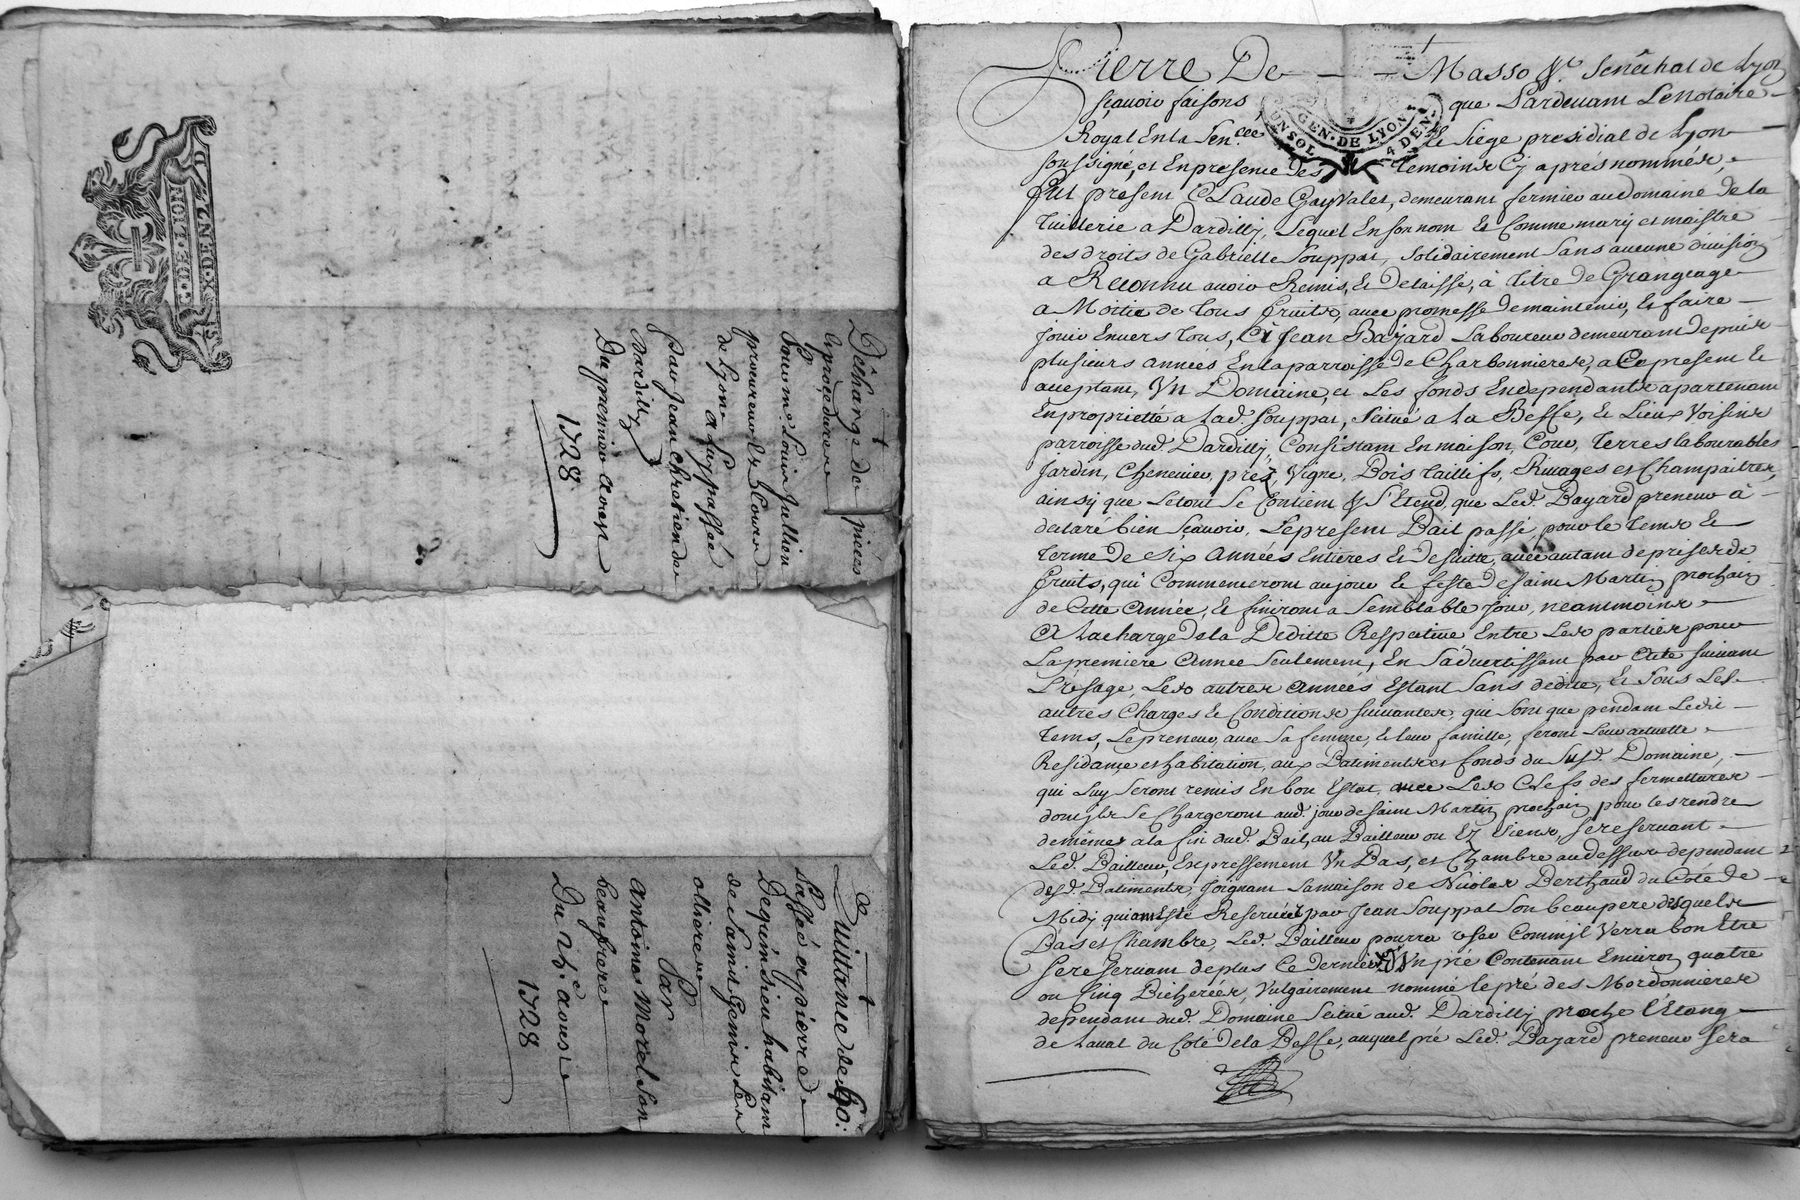 G. DE. LION
X. DEN.
Déharge de pièces
& procedures
Pour me. Louis Jullien
procureur ez Cours
de Lyon a luy passée
par Jean Chretien de
Dardilly
Du premier aoust
1728
Quittance de 60:
Passé a pierre
Dequinsieu habitant
de Saint Genis Les
ollieres
Par
Antoine Morel son
beaufrere
Du 25.e aoust
1728
Pierre De Masso &c. Senêchal de Lyon
sçavoir faisons, que Pardevant Le Notaire
GEN. DE LYON
UN SOL 4 DEN.
Royal En la Sen.cée & Siége presidial de Lyon
soussigné, et En presence des temoins Cy apres nommés,
fut present Claude Gayvalet, demeurant fermier au domaine de la
tuillerie a Dardilly, Lequel En son nom & Comme mary et maistre
des droits de Gabrielle Souppat, Solidairement Sans aucune division
a Reconnu avoir Remis, & Delaissé, à titre de Grangeage
a Moitié de tous fruits, avec promesse de maintenir, & faire
jouir Envers tous, A Jean Bayard Laboureur demeurant depuis
plusieurs années En la parroisse de Charbonnieres, a Ce present &
acceptant, Un Domaine, et Les fonds En dependants apartenant
En proprietté a Lad. Souppat, Scitué a La Beffe, & Lieux Voisins
parroisse dud. Dardilly, Consistant En maison, Cour, terres labourables,
Jardin, Chenevier, prez, Vigne, Bois taillifs, Rivages et Champaitres,
ainsy que Le tout Se Contient & S'Etend, que Led. Bayard preneur à
declaré bien sçavoir, Le present Bail passé, pour le tems &
terme de Six Années Entieres & de suitte, avec autant de prises de
fruits, qui Commenceront au jour & feste de saint Martin prochain
de Cette Année, & finiront a Semblable jour, neantmoins
A La charge de la Deditte Respective Entre Les parties pour
La premiere Année Seulement, En S'advertissant par Acte suivant
L'vsage, Les autres Années Estant Sans dedite, & Sous Les
autres Charges & Conditions Suivantes, qui Sont que pendant Ledit
tems, Le preneur, avec Sa femme, & leur famille, feront Leur actuelle
Residance et habitation, aux Batiments et fonds du Susd. Domaine,
qui Luy Seront remis En bon Estat, avec Les Clefs des fermettures
dont ils Se Chargeront aud. jour de saint Martin prochain pour les rendre
de mêmes a la fin dud. Bail, au Bailleur ou Ez Siens, Se reservant
Led. Bailleur, Expressement Un Bas, et Chambre au dessus dependant
desd. Batiments, Joignant la maison de Nicolas Berthaud du Coté de
Midy qui ont Esté Reservées par Jean Souppat Son beaupere desquels
Bas et Chambre, Led. Bailleur pourra vser Comm'jl Verra bon Etre
Se reservant de plus Ce dernier Un pré Contenant Environ quatre
ou Cinq Bicherées, Vulgairement nommé le pré des Mordonnieres
dependant dud. Domaine Scitué aud. Dardilly proche l'Etang
de Laval du Coté de la Beffe, auquel pré Led. Bayard preneur Sera